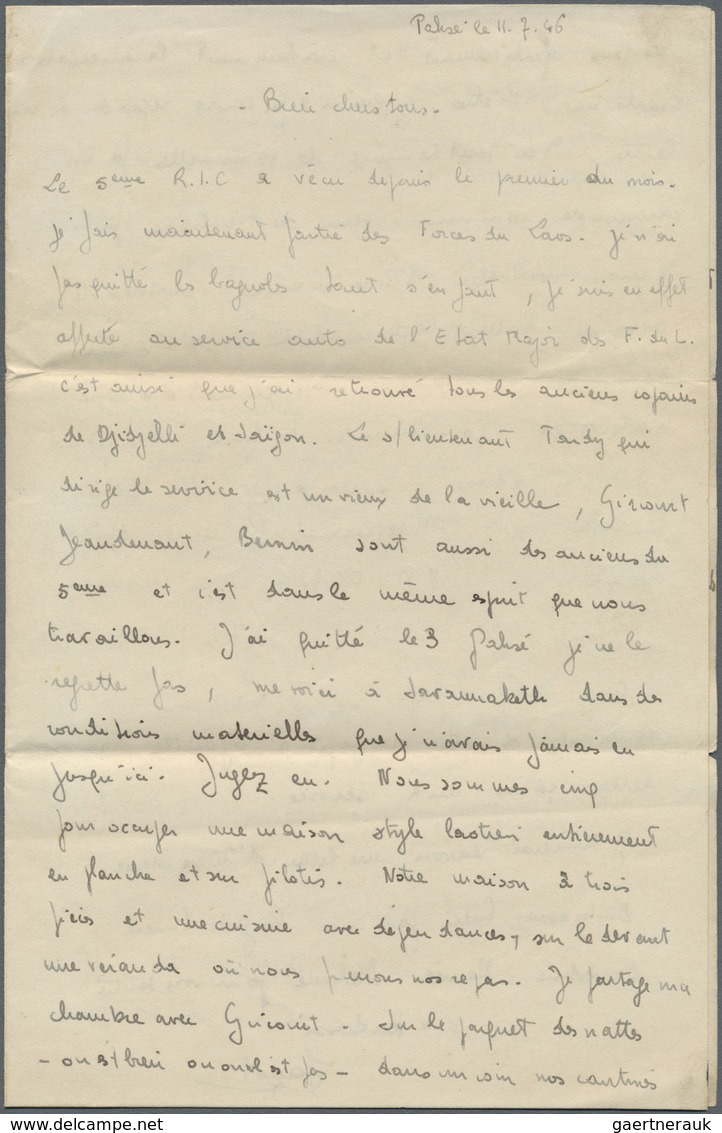 Paksé le 11.7.46
- Bien chers tous -
Le 5eme R.I.C a vécu depuis le premier du mois.
je fais maintenant partie des Forces du Laos. Je n'ai
pas quitté les bagnoles tant s'en faut, je suis en effet
affecté au service auto de l'Etat Major des F. du L.
c'est ainsi que j'ai retrouvé tous les anciens copains
de Djidjelli et Saïgon. Le s/lieutenant Tardy qui
dirige le service est un vieux de la vieille, Gircourt
Jeandenant, Bernin sont aussi des anciens du
5eme et c'est dans le même esprit que nous
travaillons. J'ai quitté le 3 Paksé je ne le
regrette pas, me voici à Savannaketh dans des
conditions matérielles que je n'avais jamais eu
jusqu'ici. Jugez en. Nous sommes cinq
pour occuper une maison style laotien entièrement
en planche et sur pilotis. Notre maison a trois
pièces et une cuisine avec dépendances, sur le devant
une véranda où nous prenons nos repas. Je partage ma
chambre avec Gircourt. Sur le parquet des nattes
- on est bien ou on ne l'est pas - dans un coin nos cantines
gaertnerauk